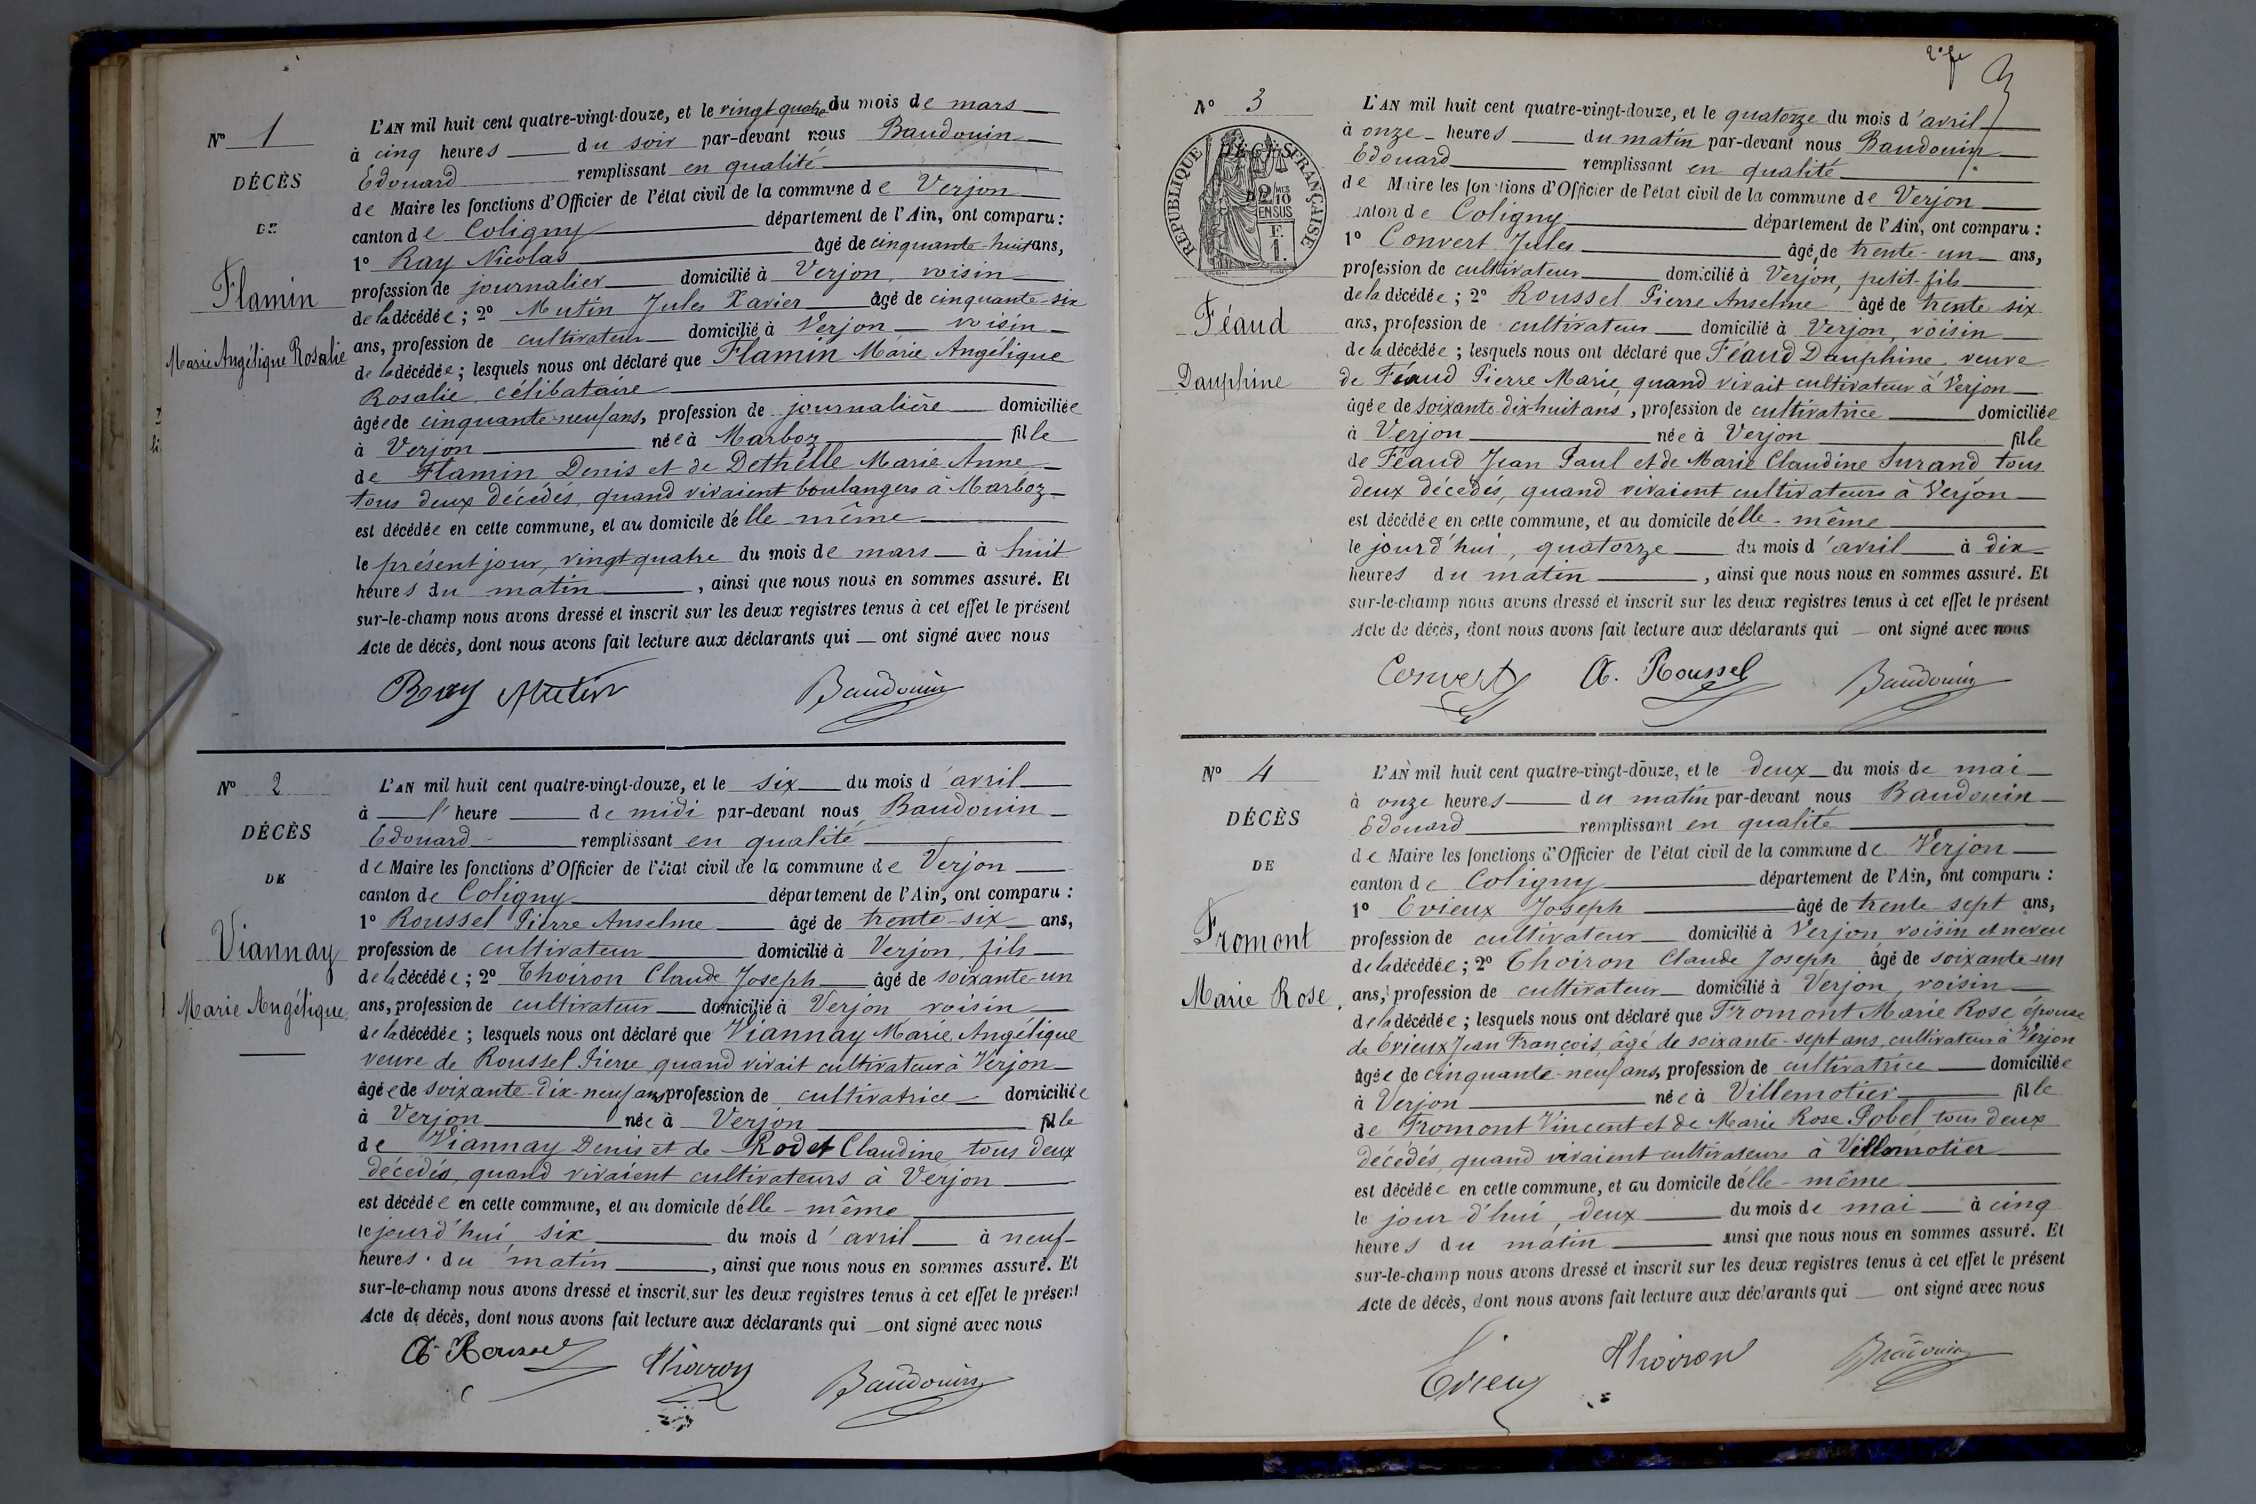 N° 1
DÉCÈS
DE
Flamin
Marie Angélique Rosalie
L'AN mil huit cent quatre-vingt-douze, et le vingt quatre du mois de mars
à cinq heures du soir par-devant nous Baudouin
Edouard remplissant en qualité
de Maire les fonctions d'Officier de l'état civil de la commune de Verjon
canton de Coligny département de l'Ain, ont comparu :
1° Ray Nicolas âgé de cinquante-huit ans,
profession de journalier domicilié à Verjon, voisin
de la décédée ; 2° Mutin Jules Xavier âgé de cinquante-six
ans, profession de cultivateur domicilié à Verjon voisin
de la décédée ; lesquels nous ont déclaré que Flamin Marie Angélique
Rosalie, célibataire
âgée de cinquante-neuf ans, profession de journalière domiciliée
à Verjon née à Marboz fille
de Flamin Denis et de Dethelle Marie Anne
tous deux décédés, quand vivaient boulangers à Marboz
est décédée en cette commune, et au domicile d'elle même
le présent jour, vingt quatre du mois de mars à huit
heures du matin, ainsi que nous nous en sommes assuré. Et
sur-le-champ nous avons dressé et inscrit sur les deux registres tenus à cet effet le présent
Acte de décès, dont nous avons fait lecture aux déclarants qui ont signé avec nous
Ray Mutin Baudouin
N° 2
DÉCÈS
DE
Viannay
Marie Angélique
L'AN mil huit cent quatre-vingt-douze, et le six du mois d'avril
à l'heure de midi par-devant nous Baudouin
Edouard remplissant en qualité
de Maire les fonctions d'Officier de l'état civil de la commune de Verjon
canton de Coligny département de l'Ain, ont comparu :
1° Roussel Pierre Anselme âgé de trente-six ans,
profession de cultivateur domicilié à Verjon, fils
de la décédée ; 2° Thoiron Claude Joseph âgé de soixante-un
ans, profession de cultivateur domicilié à Verjon voisin
de la décédée ; lesquels nous ont déclaré que Viannay Marie Angélique
veuve de Roussel Pierre quand vivait cultivateur à Verjon
âgée de soixante-dix-neuf ans profession de cultivatrice domiciliée
à Verjon née à Verjon fille
de Viannay Denis et de Rodet Claudine tous deux
décédés, quand vivaient cultivateurs à Verjon
est décédée en cette commune, et au domicile d'elle-même
le jourd'hui, six du mois d'avril à neuf
heures du matin, ainsi que nous nous en sommes assuré. Et
sur-le-champ nous avons dressé et inscrit sur les deux registres tenus à cet effet le présent
Acte de décès, dont nous avons fait lecture aux déclarants qui ont signé avec nous
A. Roussel Thoiron Baudouin
3
N° 3
RÉPUBLIQUE FRANÇAISE
DÉCÈS
2/10
EN SUS
Féaud
Dauphine
L'AN mil huit cent quatre-vingt-douze, et le quatorze du mois d'avril
à onze heures du matin par-devant nous Baudouin
Edouard remplissant en qualité
de Maire les fonctions d'Officier de l'état civil de la commune de Verjon
canton de Coligny département de l'Ain, ont comparu :
1° Convert Jules âgé de trente-un ans,
profession de cultivateur domicilié à Verjon, petit-fils
de la décédée ; 2° Roussel Pierre Anselme âgé de trente six
ans, profession de cultivateur domicilié à Verjon, voisin
de la décédée ; lesquels nous ont déclaré que Féaud Dauphine, veuve
de Féaud Pierre Marie, quand vivait cultivateur à Verjon
âgée de soixante-dix-huit ans, profession de cultivatrice domiciliée
à Verjon née à Verjon fille
de Féaud Jean Paul et de Marie Claudine Surand tous
deux décédés, quand vivaient cultivateurs à Verjon
est décédée en cette commune, et au domicile d'elle-même
le jourd'hui, quatorze du mois d'avril à dix
heures du matin, ainsi que nous nous en sommes assuré. Et
sur-le-champ nous avons dressé et inscrit sur les deux registres tenus à cet effet le présent
Acte de décès, dont nous avons fait lecture aux déclarants qui ont signé avec nous
Convert A. Roussel Baudouin
N° 4
DÉCÈS
DE
Fromont
Marie Rose
L'AN mil huit cent quatre-vingt-douze, et le deux du mois de mai
à onze heures du matin par-devant nous Baudouin
Edouard remplissant en qualité
de Maire les fonctions d'Officier de l'état civil de la commune de Verjon
canton de Coligny département de l'Ain, ont comparu :
1° Evieux Joseph âgé de trente sept ans,
profession de cultivateur domicilié à Verjon voisin et neveu
de la décédée ; 2° Thoiron Claude Joseph âgé de soixante-un
ans, profession de cultivateur domicilié à Verjon, voisin
de la décédée ; lesquels nous ont déclaré que Fromont Marie Rose épouse
de Evieux Jean François, âgé de soixante-sept ans, cultivateur à Verjon
âgée de cinquante-neuf ans, profession de cultivatrice domiciliée
à Verjon née à Villemotier fille
de Fromont Vincent et de Marie Rose Pobel tous deux
décédés, quand vivaient cultivateurs à Villemotier
est décédée en cette commune, et au domicile d'elle-même
le jour d'hui, deux du mois de mai à cinq
heures du matin ainsi que nous nous en sommes assuré. Et
sur-le-champ nous avons dressé et inscrit sur les deux registres tenus à cet effet le présent
Acte de décès, dont nous avons fait lecture aux déclarants qui ont signé avec nous
Evieux Thoiron Baudouin